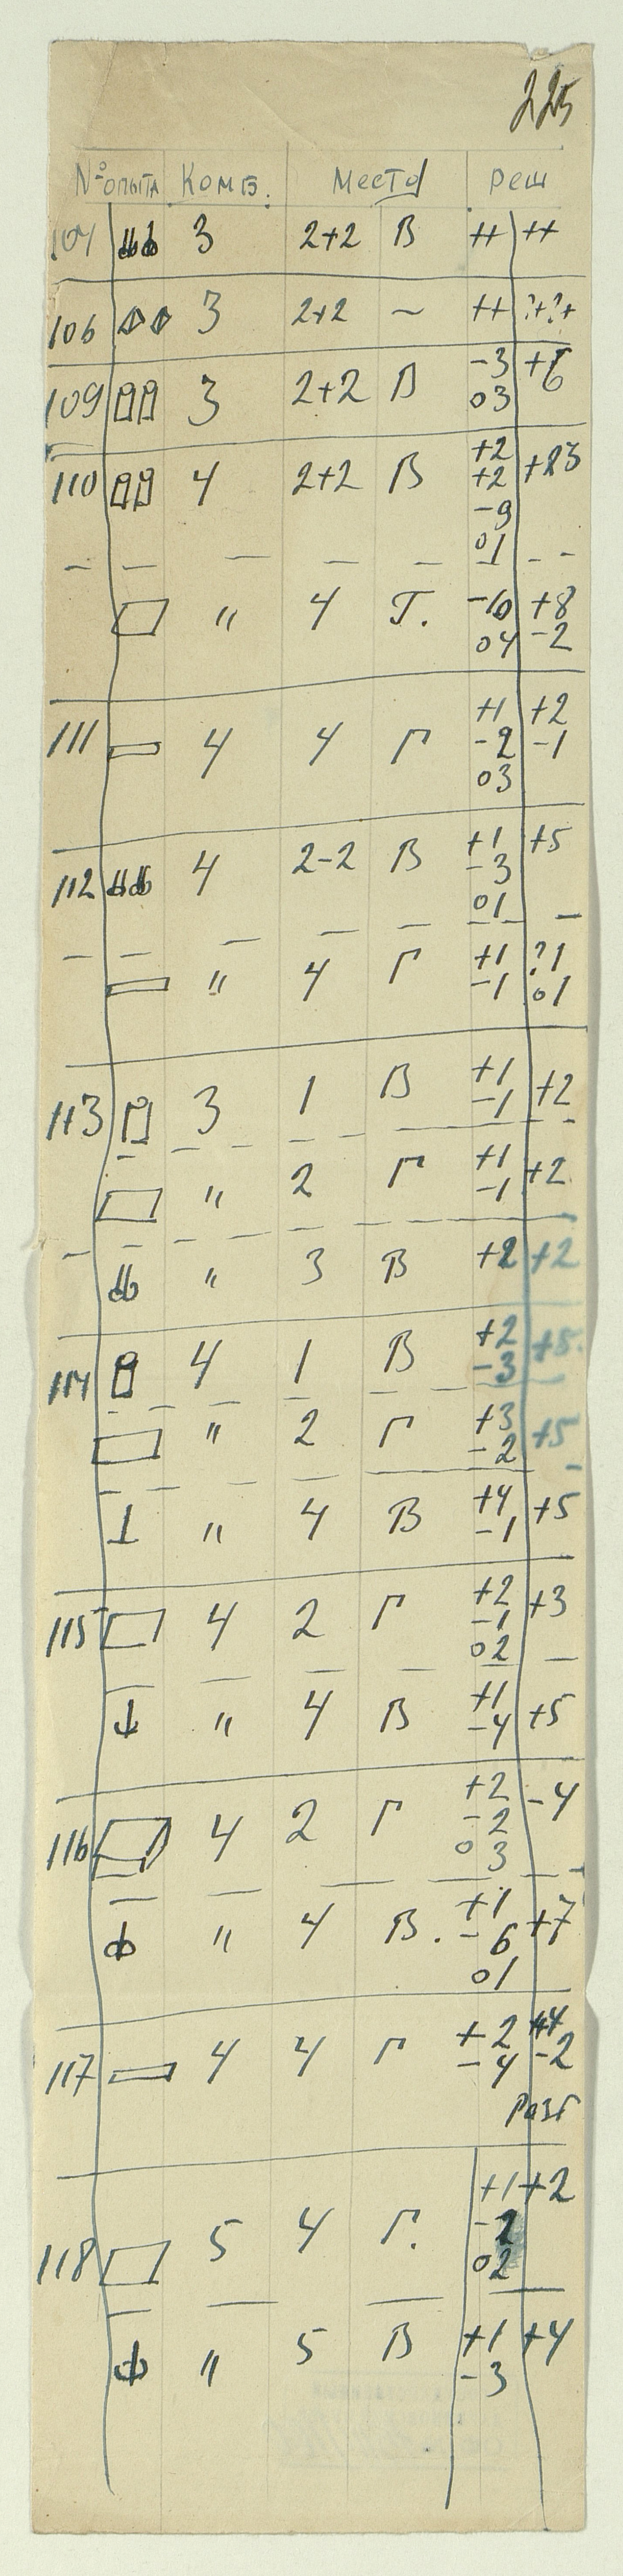 225
№ опыта Комб. Место Реш
107 3 2+2 В ++ ++
106 3 2+2 ~ ++ ?+?+
109 3 2+2 В -3 +6
03
110 4 2+2 В +2
+2
-9
01
" 4 Г. -10 +8
04 -2
111 4 4 Г +1 +2
-2 -1
03
112 4 2-2 В +1 +5
-3
01
" 4 Г +1 ?1
-1 01
113 3 1 В +1 +2
-1
" 2 Г +1 +2
-1
" 3 В +2 +2
114 4 1 В +2 +5
-3
" 2 Г +3 +5
-2
" 4 В +4 +5
-1
115 4 2 Г +2 +3
-1
02
" 4 В +1 +5
-4
116 4 2 Г +2 -4
-2
03
" 4 В. +1 +7
-6
01
117 4 4 Г +2 +4
-4 -2
Разг
118 5 4 Г. +1 +2
-2
02
" 5 В +1 +4
-3